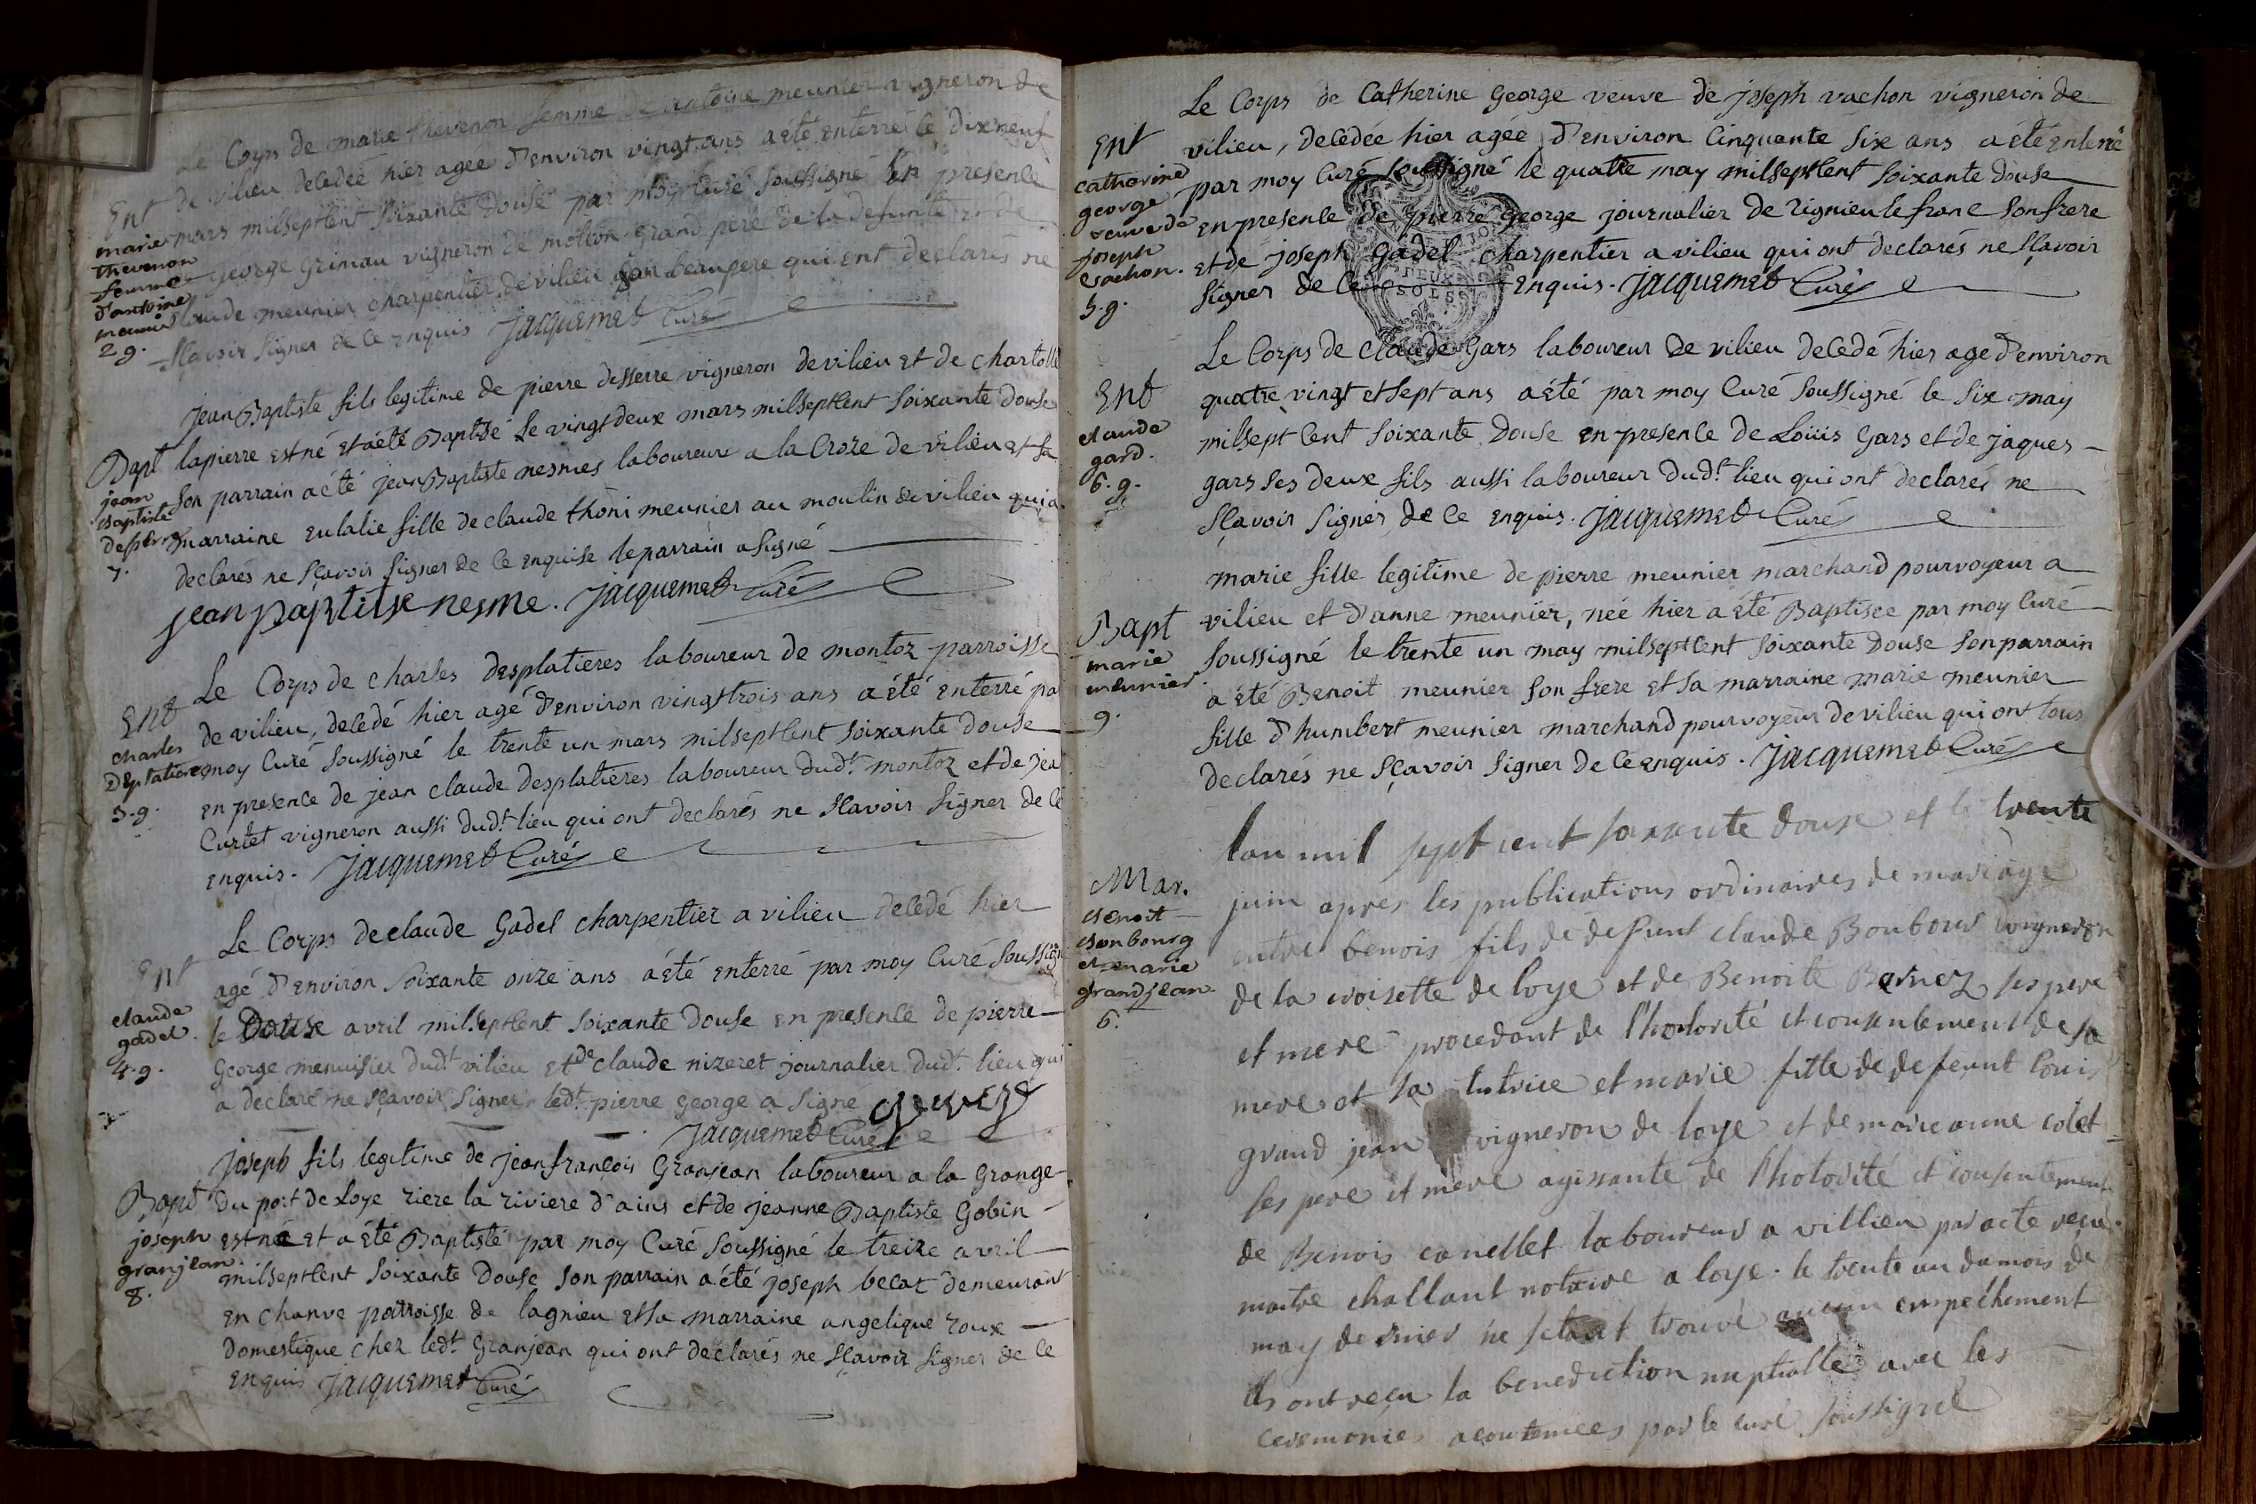 Le Corps de marie thevenon femme d'antoine meunier vigneron de
Ent
de vilieu decedée hier agée d'environ vingt ans a été enterré le dix neuf
marie
thevenon
femme
d'antoine
meunier
2 9.
mars milseptcent soixante douse par moy curé soussigné en presence
de george grimau vigneron de mollon grand pere de la defunte et de
claude meunier charpentier de vilieu son beaupere qui ont declarés ne
sçavoir signer de ce enquis Jacquemet Curé
jean Baptiste fils legitime de pierre desserre vigneron de vilieu et de charlotte
Bapt
jean
Baptiste
desserre
7.
lapierre est né et a été Baptisé le vingt deux mars milseptcent soixante douse
son parrain a été jean Baptiste nesmes laboureur a la Croze de vilieu et sa
marraine eulalie fille de claude thoni meunier au moulin de vilieu qui a
declarés ne sçavoir signer de ce enquise le parrain a signé
jean paptitse nesme. Jacquemet Curé
Le Corps de charles desplatieres laboureur de montoz parroisse
Ent
charles
desplatieres
3. 9.
de vilieu, decedé hier agé d'environ vingt trois ans a été enterré pa
moy Curé soussigné le trente un mars milseptcent soixante douse
en presence de jean claude desplatieres laboureur dud.t montoz et de jea
Curtet vigneron aussi dud.t lieu qui ont declarés ne sçavoir signer de ce
enquis. Jacquemet Curé
Le Corps de claude Gadel charpentier a vilieu decedé hier
Ent
claude
gadel.
4. 9.
agé d'environ soixante onze ans a été enterré par moy Curé soussigné
le Douse avril milseptcent soixante douse en presence de pierre
George menuisier dud.t vilieu et de claude nizeret journalier dud.t lieu qui
a declaré ne sçavoir signer led.t pierre george a signé
Jacquemet Curé
joseph fils legitime de jean françois Granjean laboureur a la Grange
Bapt
joseph
granjean.
8.
du port de Loye riere la riviere d'ains et de jeanne Baptiste Gobin
est né et a été Baptisté par moy Curé soussigné le treize avril
milseptcent soixante douse son parrain a été joseph becat demeurant
en chanve parroisse de lagnieu et sa marraine angelique roux
domestique chez led.t Granjean qui ont declarés ne sçavoir signer de ce
enquis Jacquemet Curé
Le Corps de Catherine George veuve de joseph vachon vigneron de
Ent
catherine
george
veuve de
joseph
vachon.
5. 9.
vilieu, decedée hier agée d'environ Cinquante six ans a été enterré
par moy Curé soussigné le quatre may milseptcent soixante douse
en presence de pierre George journalier de rignieu le franc son frere
et de joseph Gadel charpentier a vilieu qui ont declarés ne sçavoir
signer de ce enquis. Jacquemet Curé
Le Corps de claude Gars laboureur de vilieu decedé hier age d'environ
Ent
claude
gard.
6. 9.
quatre vingt et sept ans a été par moy Curé soussigné le six may
milsept cent soixante douse en presence de Loüis Gars et de jaques
gars ses deux fils aussi laboureur dud.t lieu qui ont declarés ne
sçavoir signer de ce enquis. Jacquemet Curé
marie fille legitime de pierre meunier marchand pourvoyeur a
Bapt
marie
meunier.
9.
vilieu et d'anne meunier, née hier a été Baptisée par moy Curé
soussigné le trente un may milseptcent soixante douse son parrain
a été Benoit meunier son frere et sa marraine marie meunier
fille d'humbert meunier marchand pourvoyeur de vilieu qui ont tous
declarés ne sçavoir signer de ce enquis. Jacquemet Curé
lan mil sept cent soixante douze et le trente
Mar.
Benoit
Bonbourg
et marie
grandjean
6.
juin après les publications ordinaires de mariage
entre benois fils de defunt claude Bonbour vigneron
de la croisette de loye et de Benoite Bernez ses pere
et mere procedant de l'hotorité et consentement de sa
mere et sa tutrice et marie fille de defeunt louis
grand jean vigneron de loye et de marie anne colet
ses pere et mere agissante de l'hotorité et consentement
de Benois canellet laboureur a villieu par acte reçu
maitre challant notaire a loye. le trente un du mois de
may dernier ne setant trouvé aucun empechement
ils ont reçu la benediction nuptialle avec les
ceremonies acoutumees par le curé soussigné